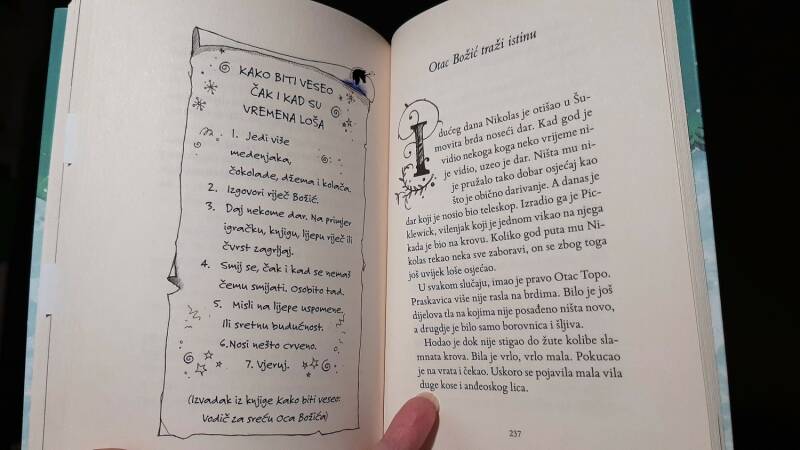 KAKO BITI VESEO
ČAK I KAD SU
VREMENA LOŠA
1. Jedi više
medenjaka,
čokolade, džema i kolača.
2. Izgovori riječ Božić.
3. Daj nekome dar. Na primjer
igračku, knjigu, lijepu riječ ili
čvrst zagrljaj.
4. Smij se, čak i kad se nemaš
čemu smijati. Osobito tad.
5. Misli na lijepe uspomene.
Ili sretnu budućnost.
6. Nosi nešto crveno.
7. Vjeruj.
(Izvadak iz knjige Kako biti veseo:
Vodič za sreću Oca Božića)
Otac Božić traži istinu
Idućeg dana Nikolas je otišao u Šu-
movita brda noseći dar. Kad god je
vidio nekoga koga neko vrijeme ni-
je vidio, uzeo je dar. Ništa mu ni-
je pružalo tako dobar osjećaj kao
što je obično darivanje. A danas je
dar koji je nosio bio teleskop. Izradio ga je Pic-
klewick, vilenjak koji je jednom vikao na njega
kada je bio na krovu. Koliko god puta mu Ni-
kolas rekao neka sve zaboravi, on se zbog toga
još uvijek loše osjećao.
U svakom slučaju, imao je pravo Otac Topo.
Praskavica više nije rasla na brdima. Bilo je još
dijelova tla na kojima nije posađeno ništa novo,
a drugdje je bilo samo borovnica i šljiva.
Hodao je dok nije stigao do žute kolibe sla-
mnata krova. Bila je vrlo, vrlo mala. Pokucao
je na vrata i čekao. Uskoro se pojavila mala vila
duge kose i anđeoskog lica.
237